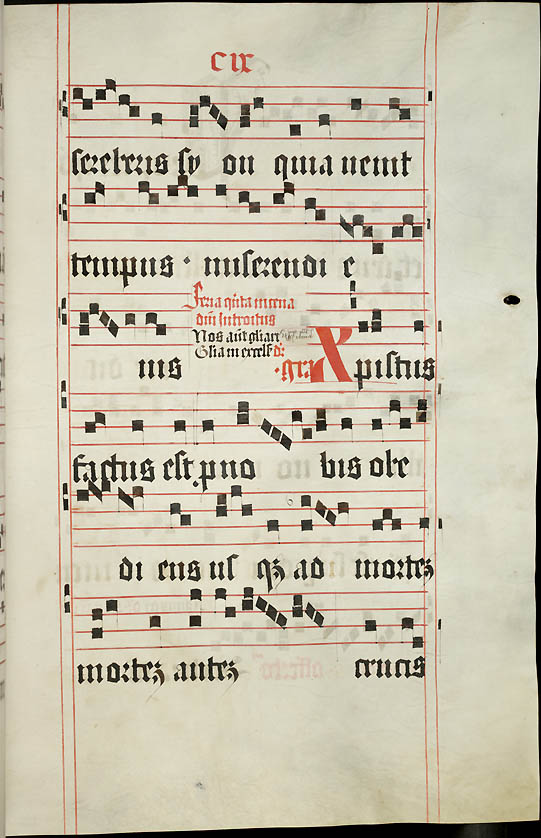 CIX
sereberis sy on quia uenit
tempus · miserendi e
Feria q̃nta in cena
dñi Introitus
Nos aũt gliari
Glia in excelſ dõ
ius ·gra Xpistus
factus est pno bis obe
di ens usqꝫ ad morteꝫ
morteꝫ auteꝫ crucis